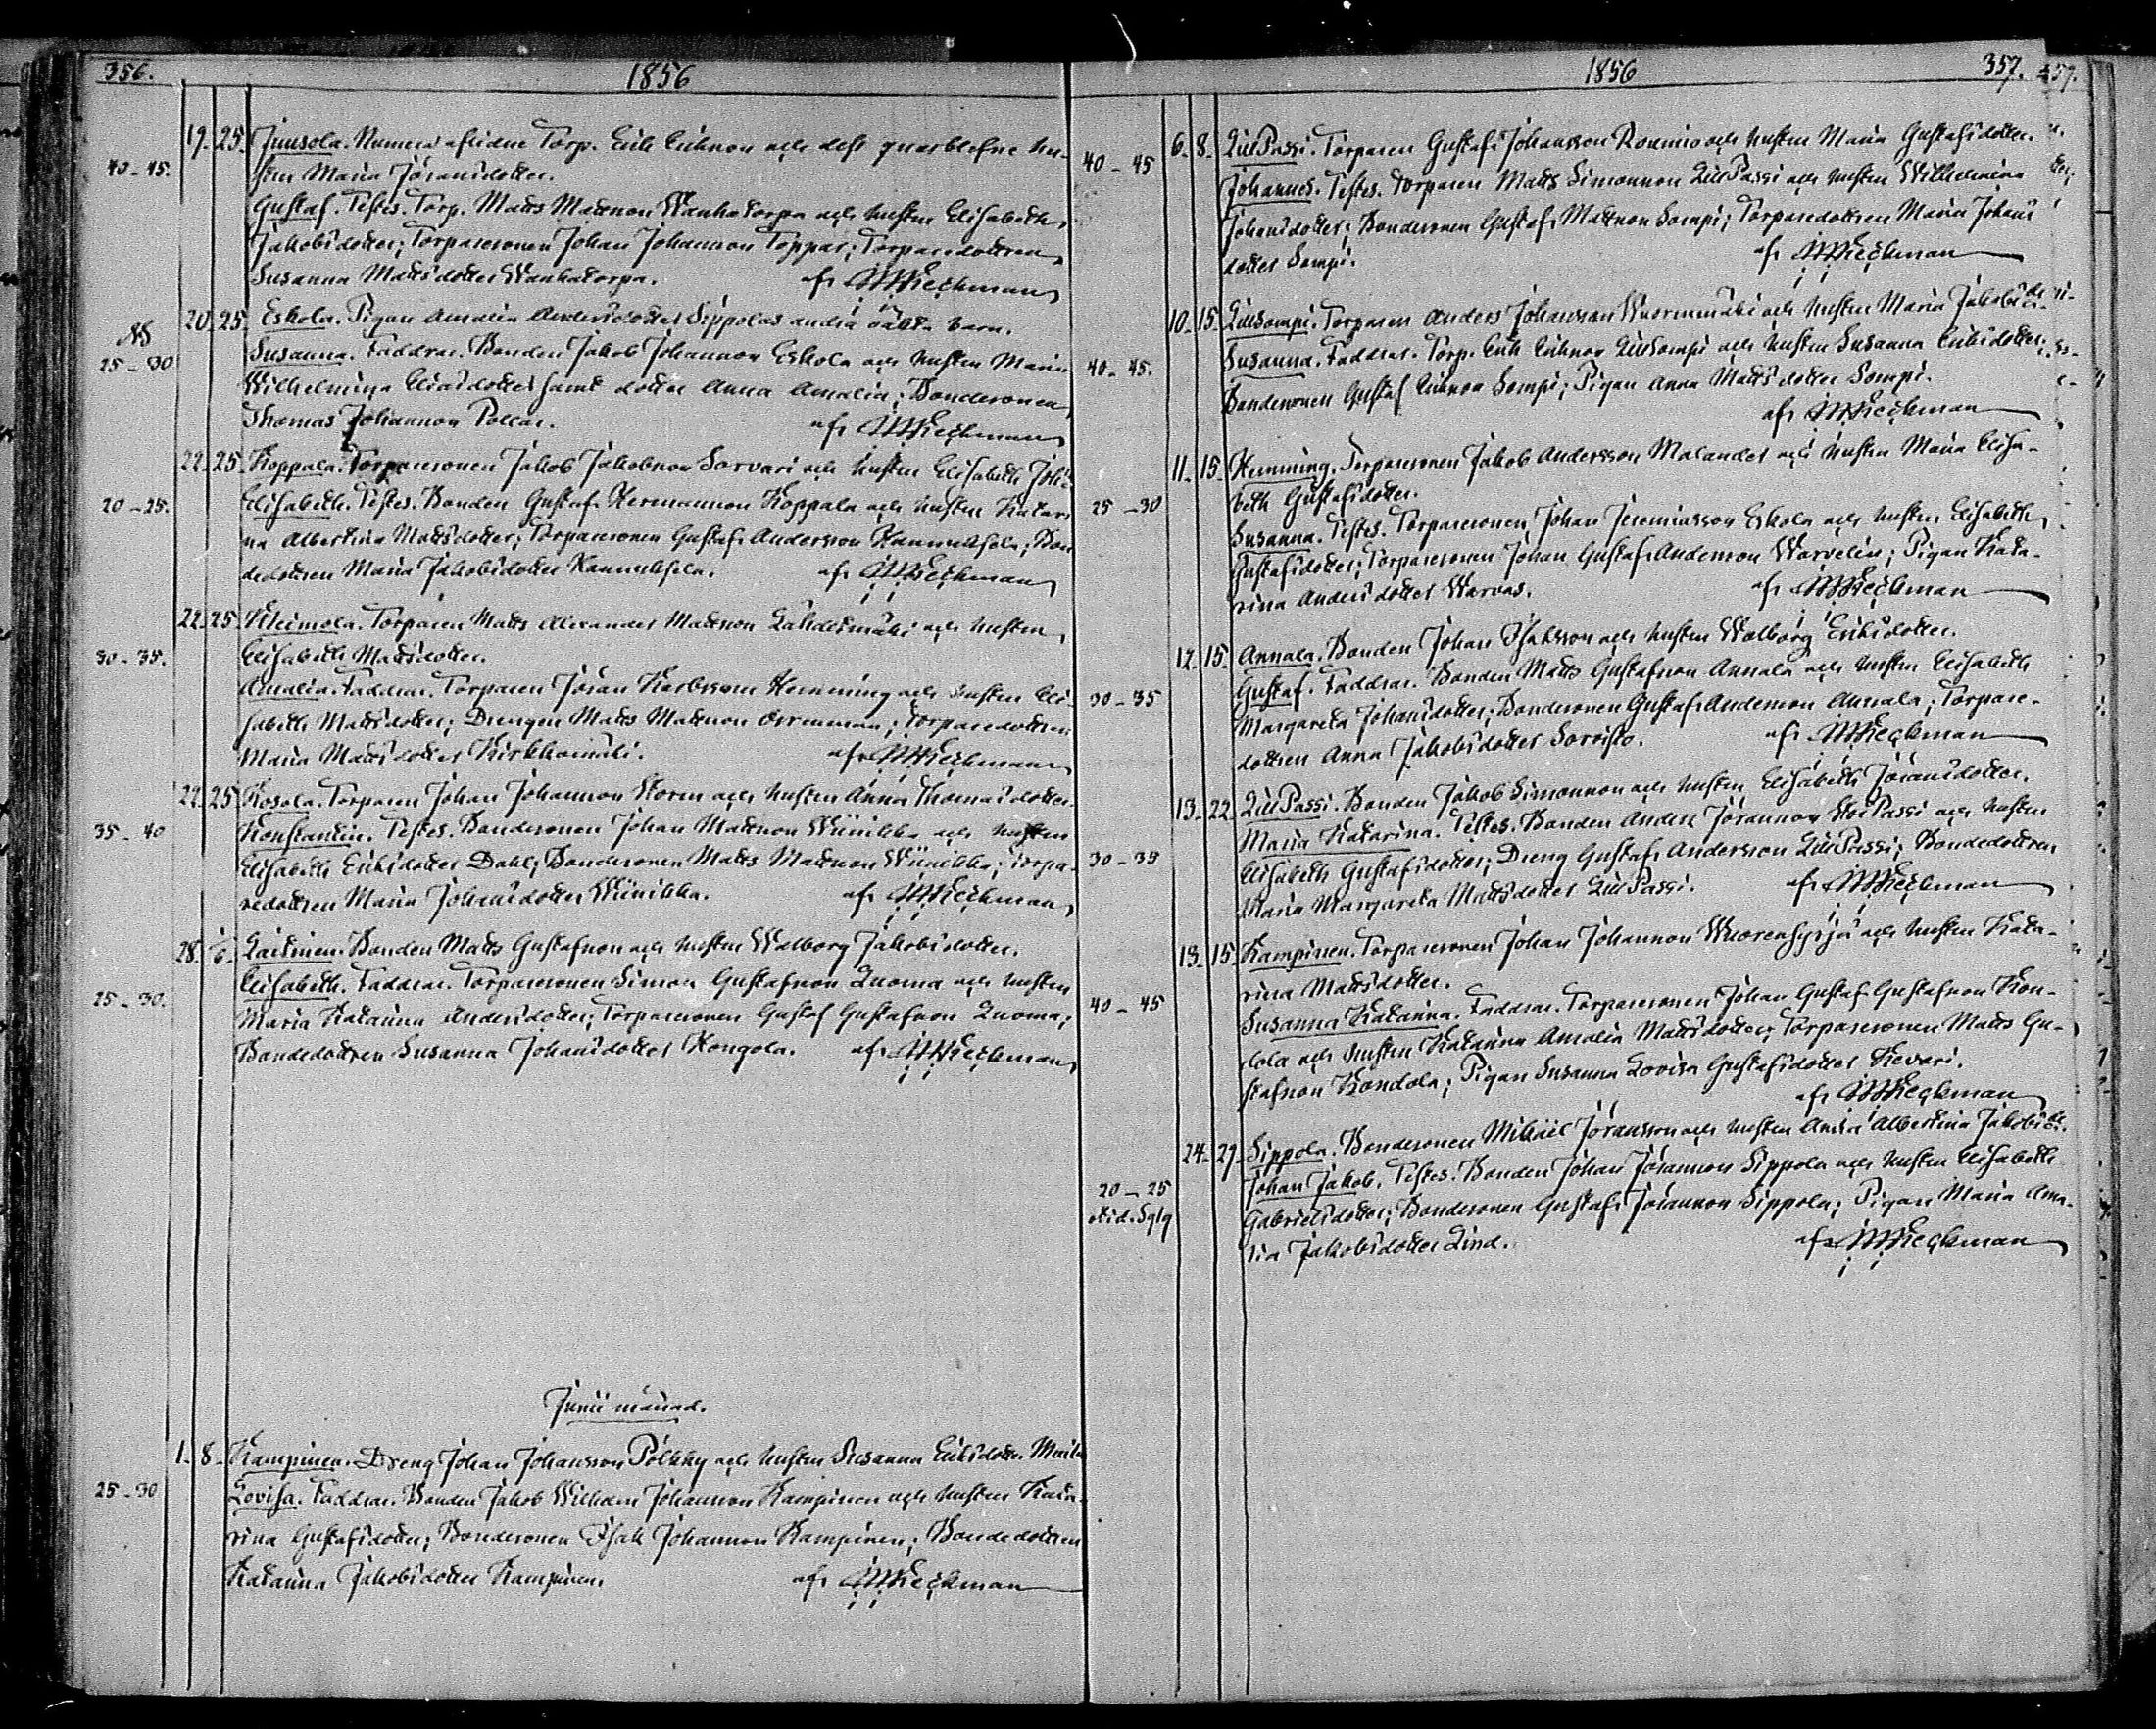 356.
1856
19. 25. Juusola. Numera aflidne Torp. Erik Eriksson och dess qvarblefne hu-
40-45. stru Maria Göransdotter.
Gustaf. Testes. Torp. Matts Mattsson Wanhatorpa och hustru Elisabeth
Jakobsdotter; Torparesonen Johan Johansson Toppar; Torparedottren
Susanna Mattsdotter Wanhatorpa. af M Heckman
20. 25. Eskola. Pigan Amalia Andersdotter Sippolas andra oäkta barn.
25-30 Susanna. Faddrar. Bonden Jakob Johansson Eskola och hustru Maria
Wilhelmina Eliasdotter samt dotter Anna Amalia; Bondesonen
Thomas Johansson Pollar. af M Heckman
22. 25. Koppala. Torparesonen Jakob Jakobsson Sorvari och hustru Elisabeth
20-25. Elisabeth. Testes. Bonden Gustaf Hermansson Koppala och hustru Katari
na Albertina Mattsdotter; Torparesonen Gustaf Andersson; Bon
dedottren Maria Jakobsdotter. af M Heckman
22. 25 Heimola. Torparen Matts Alexander Mattsson Lähdesmäki och hustru
30-35. Elisabeth Mattsdotter.
Amalia. Faddrar. Torparen Göran Karlsson Hemming och hustru Eli-
sabeth Mattsdotter; Drengen Matts Mattsson; Torparedottren
Maria Mattsdotter. af M Heckman
22. 25 Kosola. Torparen Johan Johansson Storm och hustru Anna Thomasdotter.
35-40 Konstantin. Testes. Bondesonen Johan Mattsson Wiinikka och hustru
Elisabeth Eriksdotter Dahl; Bondesonen Matts Mattsson Wiinikka; Torpa-
redottren Maria Johansdotter Wiinikka. af M Heckman
28. 6. Laitinen. Bonden Matts Gustafsson och hustru Walborg Jakobsdotter.
25-30. Elisabeth. Faddrar. Torparesonen Simon Gustafsson Luoma och hustru
Maria Katarina Andersdotter; Torparesonen Gustaf Gustafsson Luoma;
Bondedottren Susanna Johansdotter Hongola. af M Heckman
Junii månad.
1. 8. Kampinen. Dreng Johan Johansson Pölkky och hustru Susanna Eriksdotter. Maria
25-30 Lovisa. Faddrar. Bonden Jakob Wilhelm Johansson Kampinen och hustru Kata-
rina Gustafsdotter; Bondesonen Isak Johansson Kampinen; Bondedottren
Katarina Jakobsdotter Kampinen. af M Heckman
1856
357. 357.
6. 8. LillPassi. Torparen Gustaf Johansson Roumio och hustru Maria Gustafsdotter.
40-45 Johannes. Testes. Torparen Matts Simonsson LillPassi och hustru Wilhelmina
Johansdotter; Bondesonen Gustaf Mattsson Sompi; Torparedottren Maria Johans
dotter Sompi. af M Heckman
10. 15. LillSompi. Torparen Anders Johansson Wuorenmäki och hustru Maria Jakobsdr.
40-45. Susanna. Faddrar. Torp. Erik Eriksson LillSompi och hustru Susanna Eriksdotter;
Bondesonen Gustaf Eriksson Sompi; Pigan Anna Mattsdotter Sompi.
af M Heckman
11. 15. Hemming. Torparesonen Jakob Andersson Malander och hustru Maria Elisa-
25-30 beth Gustafsdotter.
Susanna. Testes. Torparesonen Johan Jeremiasson Eskola och hustru Elisabeth
Gustafsdotter; Torparesonen Johan Gustaf Andersson Warvelin; Pigan Kata-
rina Andersdotter Warvas. af M Heckman
12. 15. Annala. Bonden Johan Isaksson och hustru Walborg Eriksdotter.
30-35 Gustaf. Faddrar. Bonden Matts Gustafsson Annala och hustru Elisabeth
Margareta Johansdotter; Bondesonen Gustaf Andersson Annala; Torpare-
dottren Anna Jakobsdotter Sorvisto. af M Heckman
13. 22. LillPassi. Bonden Jakob Simonsson och hustru Elisabeth Göransdotter.
30-35 Maria Katarina. Testes. Bonden Anders Göransson StorPassi och hustru
Elisabeth Gustafsdotter; Dreng Gustaf Andersson LillPassi; Bondedottren
Maria Margareta Mattsdotter LillPassi. af M Heckman
13. 15. Kampinen. Torparesonen Johan Johansson Wuorensyrjä och hustru Kata-
rina Mattsdotter.
40-45 Susanna Katarina. Faddrar. Torparesonen Johan Gustaf Gustafsson Kon-
dola och hustru Katarina Amalia Mattsdotter; Torparesonen Matts Gu-
stafsson Kondola; Pigan Susanna Lovisa Gustafsdotter Kevari.
af M Heckman
24. 29. Sippola. Bondesonen Mikael Göransson och hustru Anna Albertina Jakobsdr.
20-25 Johan Jakob. Testes. Bonden Johan Göransson Sippola och hustru Elisabeth
Gabrielsdotter; Bondesonen Gustaf Göransson Sippola; Pigan Maria Ama-
lia Jakobsdotter Lind. af M Heckman